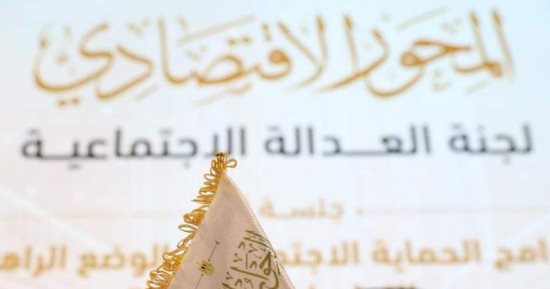 المحور الاقتصادي
لجنة العدالة الاجتماعية
جلسة
الحماية الوضع